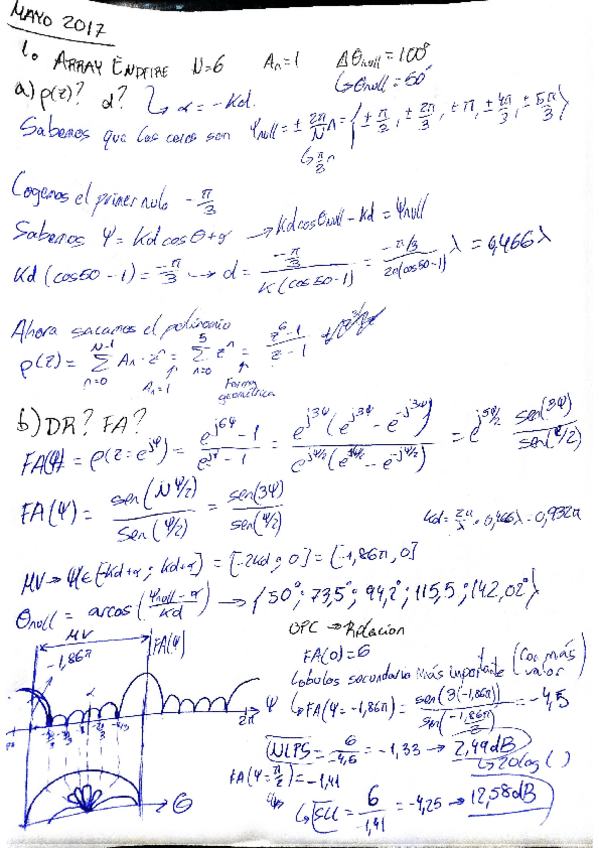 MAYO 2017
1. ARRAY ENDFIRE N=6 An=1 Δθnull=100°
↳θnull=50°
a) ρ(z)? α? ↳ α=-Kd.
Sabemos que los ceros son Ψnull=± 2π/N n = {± π/3, ± 2π/3, ± π, ± 4π/3, ± 5π/3}
↳ π/3 n
Cogemos el primer nulo -π/3
Sabemos Ψ=Kdcosθ+α → Kdcosθnull-Kd=Ψnull
Kd(cos50-1)=-π/3 → d= (-π/3)/(K(cos50-1)) = (-π/3)/(2π(cos50-1)) λ = 0,466λ
Ahora sacamos el polinomio
ρ(z)= Σ(n=0, N-1) An·z^n = Σ(n=0, 5) z^n = (z^6-1)/(z-1)
An=1 Forma geométrica
b) DR? FA?
FA(Ψ)=ρ(z=e^jΨ)= (e^j6Ψ-1)/(e^jΨ-1) = e^j3Ψ(e^j3Ψ-e^-j3Ψ)/e^jΨ/2(e^jΨ/2-e^-jΨ/2) = e^j5Ψ/2 sen(3Ψ)/sen(Ψ/2)
FA(Ψ)= sen(NΨ/2)/sen(Ψ/2) = sen(3Ψ)/sen(Ψ/2)
Kd= 2π/λ · 0,466λ = 0,932π
MV→Ψ∈[-Kd+α ; Kd+α]=[-2Kd ; 0]=[-1,86π, 0]
θnull= arcos((Ψnull-α)/Kd) → {50°; 73,5°; 94,2°; 115,5°; 142,02°}
MV
-1,86π
FA(Ψ)
Ψ
2π
θ
OPC → Relacion
FA(0)=6
Lobulos secundario más importante (Con más valor)
↳ FA(Ψ=-1,86π)= sen(3(-1,86π))/sen(-1,86π/2) = -4,5
NLPS= 6/-4,5 = -1,33 → 2,49dB
↳ 20log( )
FA(Ψ=π/2)=-1,41
↳ SLL= 6/-1,41 = -4,25 → 12,58dB